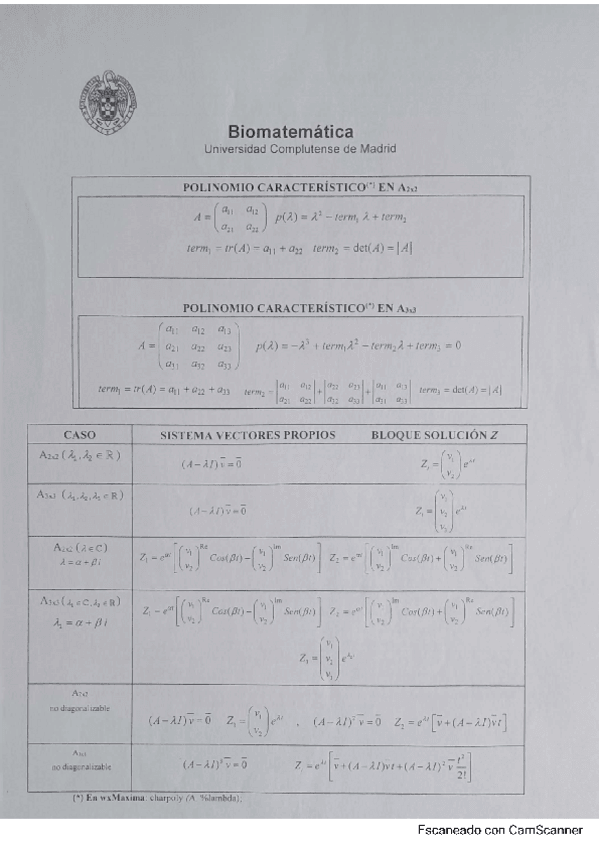 Biomatemática
Universidad Complutense de Madrid
POLINOMIO CARACTERÍSTICO(*) EN A2x2
A = (a11 a12 / a21 a22) p(λ) = λ² − term1 λ + term2
term1 = tr(A) = a11 + a22 term2 = det(A) = |A|
POLINOMIO CARACTERÍSTICO(*) EN A3x3
A = (a11 a12 a13 / a21 a22 a23 / a31 a32 a33) p(λ) = −λ³ + term1λ² − term2λ + term3 = 0
term1 = tr(A) = a11 + a22 + a33 term2 = |a11 a12 / a21 a22| + |a22 a23 / a32 a33| + |a11 a13 / a31 a33| term3 = det(A) = |A|
CASO SISTEMA VECTORES PROPIOS BLOQUE SOLUCIÓN Z
A2x2 (λ1, λ2 ∈ ℝ) (A−λI)v̅ = 0̅ Zi = (v1 / v2) e^λt
A3x3 (λ1, λ2, λ3 ∈ ℝ) (A−λI)v̅ = 0̅ Zi = (v1 / v2 / v3) e^λt
A2x2 (λ ∈ C) λ = α + βi Z1 = e^αt [(v1 / v2)^Re Cos(βt) − (v1 / v2)^Im Sen(βt)] Z2 = e^αt [(v1 / v2)^Im Cos(βt) + (v1 / v2)^Re Sen(βt)]
A3x3 (λ1 ∈ C, λ3 ∈ ℝ) λ1 = α + βi Z1 = e^αt [(v1 / v2)^Re Cos(βt) − (v1 / v2)^Im Sen(βt)] Z2 = e^αt [(v1 / v2)^Im Cos(βt) + (v1 / v2)^Re Sen(βt)]
Z3 = (v1 / v2 / v3) e^λ3t
A2x2 no diagonalizable (A−λI)v̅ = 0̅ Z1 = (v1 / v2) e^λt , (A−λI)² v̅ = 0̅ Z2 = e^λt [v̅ + (A−λI)v̅t]
A3x3 no diagonalizable (A−λI)³ v̅ = 0̅ Zi = e^λt [v̅ + (A−λI)vt + (A−λI)² v̅ t²/2!]
(*) En wxMaxima: charpoly (A, %lambda);
Escaneado con CamScanner